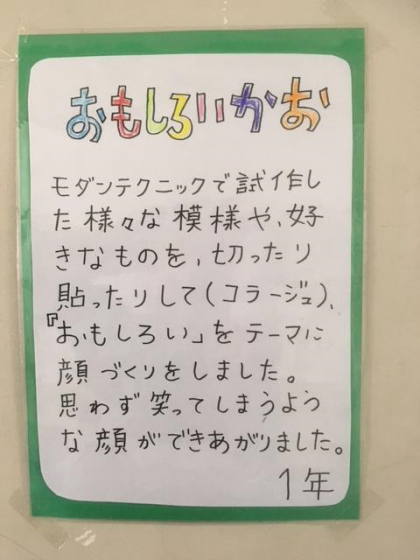 おもしろいかお
モダンテクニックで試作し
た様々な模様や、好
きなものを、切ったり
貼ったりして(コラージュ)、
『おもしろい」をテーマに
顔づくりをしました。
思わず笑ってしまうよう
な顔ができあがりました。
1年